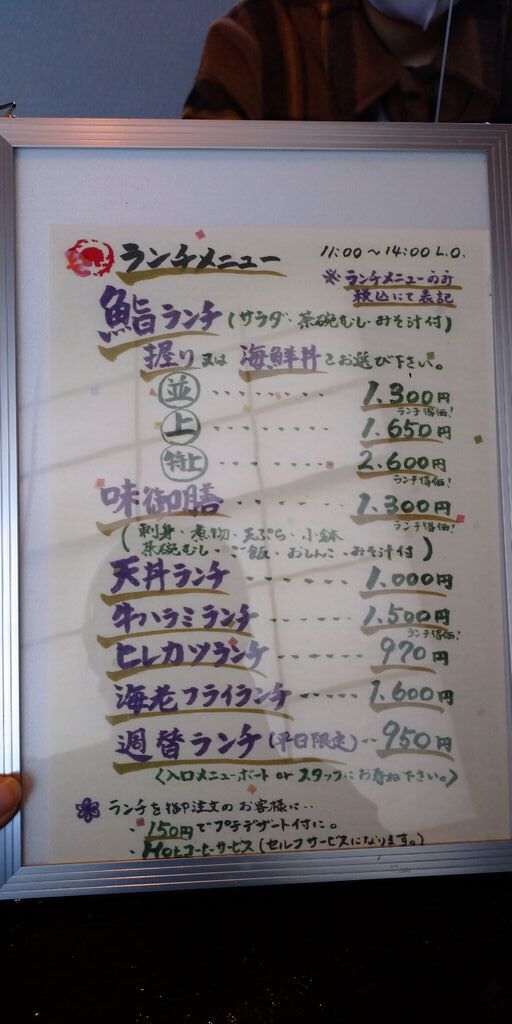 ランチメニュー 11:00〜14:00 L.O.
※ランチメニューのみ
税込にて表記
鮨ランチ(サラダ・茶碗むし・みそ汁付)
握り又は海鮮丼をお選び下さい。
並 1.300円
ランチ得価!
上 1.650円
特上 2.600円
ランチ得価!
味御膳 1.300円
ランチ得価!
(刺身・煮物・天ぷら・小鉢
茶碗むし・ご飯・おしんこ・みそ汁付)
天丼ランチ 1.000円
牛ハラミランチ 1.500円
ランチ得価!
ヒレカツランチ 970円
海老フライランチ 1.600円
週替ランチ(平日限定) 950円
〈入口メニューボート or スタッフにお尋ね下さい。〉
ランチを御注文のお客様に‥
・150円でプチデザート付に。
・Hotコーヒーサービス(セルフサービスになります。)